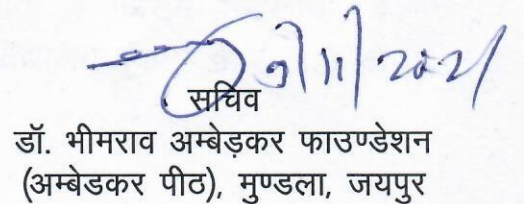 सचिव
डॉ. भीमराव अम्बेड़कर फाउण्डेशन
(अम्बेडकर पीठ), मुण्डला, जयपुर